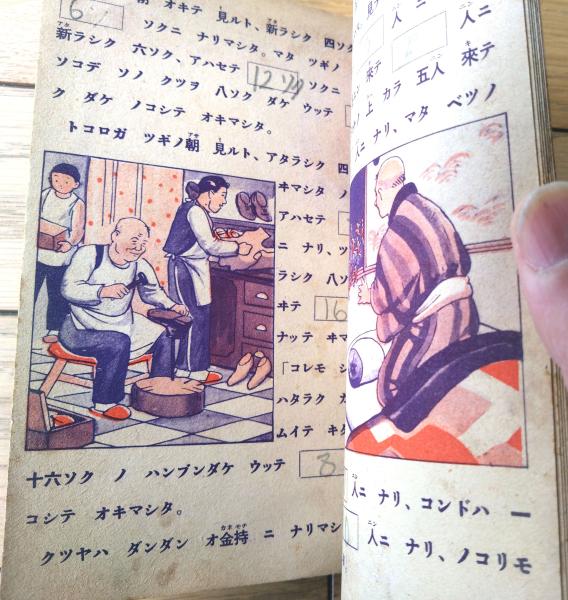 6
朝 オキテ 見ルト、新ラシク 四ソク
ソクニ ナリマシタ。マタ ツギノ
新ラシク 六ソク、アハセテ 12ソク ソクニ
ソコデ ソノ クツヲ 八ソク ダケ ウッテ
ク ダケ ノコシテ オキマシタ。
トコロガ ツギノ朝 見ルト、アタラシク 四
キマシタ ノ
アハセテ
ニ ナリ、ツ
ラシク 八ソ
ヰテ 16
ナッテ ヰマ
「コレモ シ
ハタラク カ
ムイテ キタ
十六ソク ノ ハンブンダケ ウッテ 8
コシテ オキマシタ。
クツヤハ ダンダン オ金持 ニ ナリマシ
人ニ
人ニ 來テ
上 カラ 五人 來テ
人ニ ナリ、マタ ベツノ
人ニ ナリ、コンドハ 一
人ニ ナリ、ノコリモ